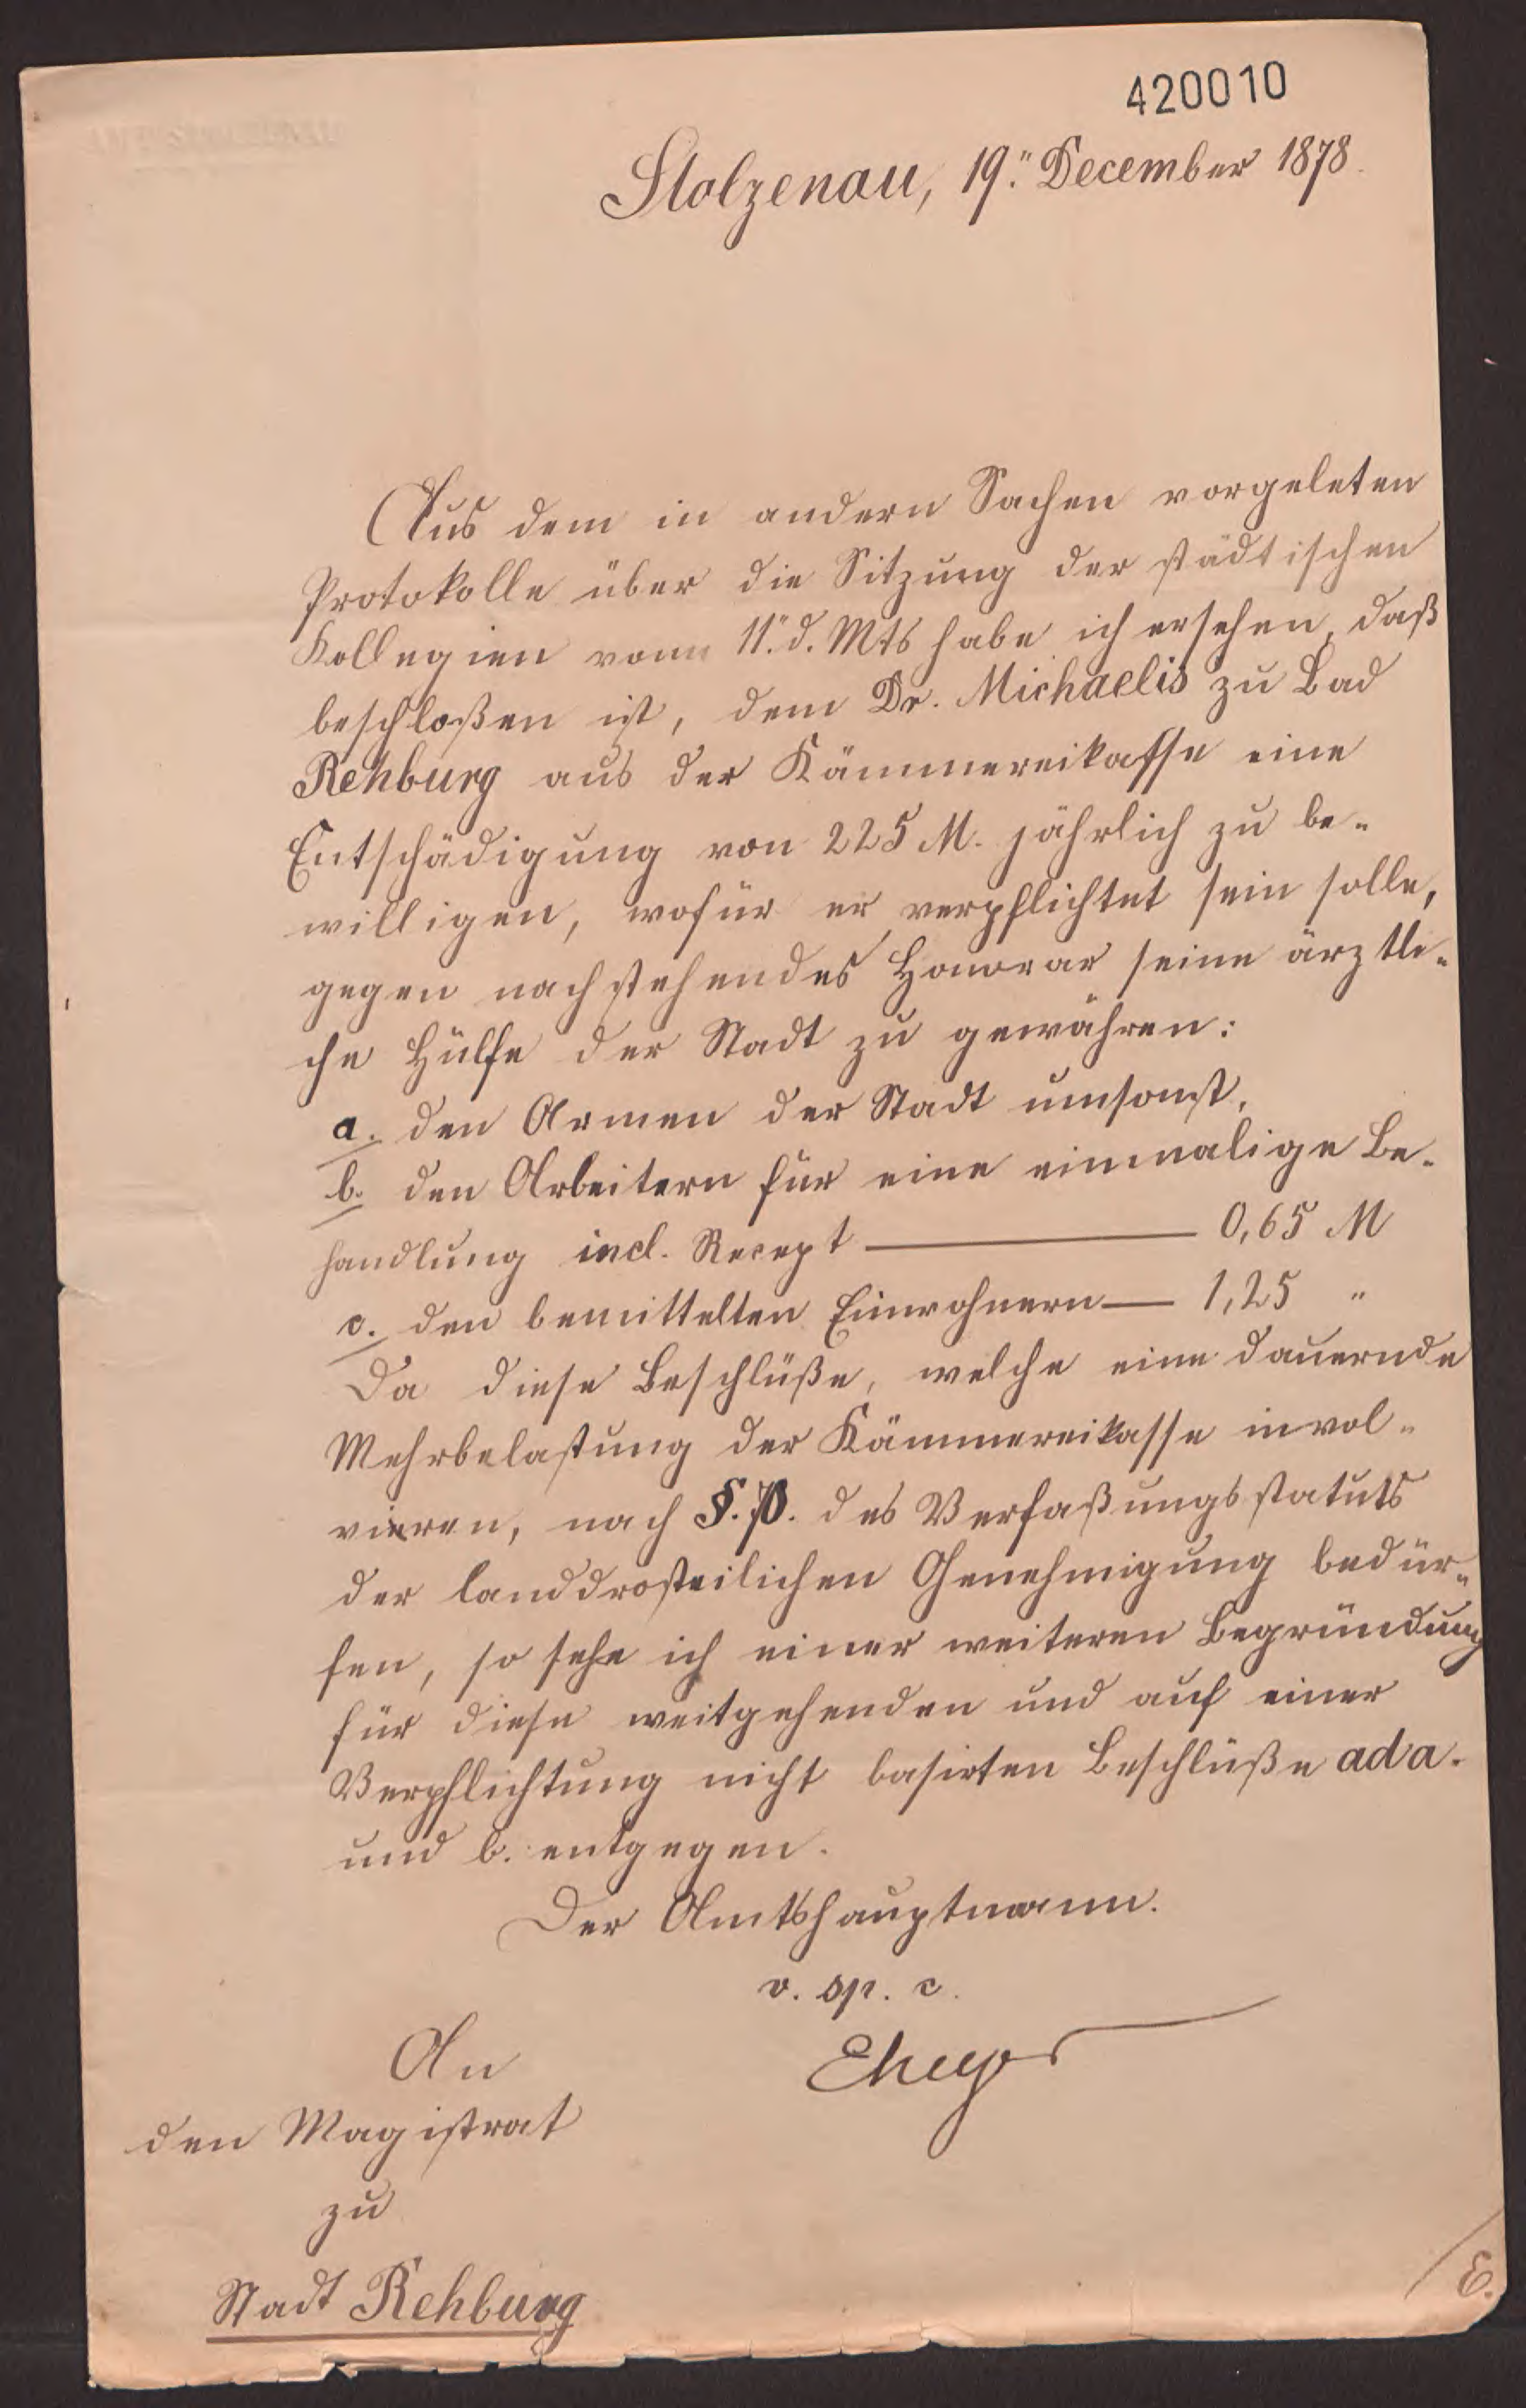 420010
Stolzenau, 19." December 1878.
Aus dem in andern Sachen vorgeleten
Protokolle über die Sitzung der städtischen
Kollegien vom 11." d. Mts habe ich ersehen, daß
beschloßen ist, dem Dr. Michaelis zu Bad
Rehburg aus der Kämmereikasse eine
Entschädigung von 225 M. jährlich zu be-
willigen, wofür er verpflichtet sein solle,
gegen nachstehendes Honorar seine ärztli-
che Hülfe der Stadt zu gewähren:
a. den Armen der Stadt umsonst,
b. den Arbeitern für eine einmalige Be-
handlung incl. Recept — 0,65 M
c. den bemittelten Einwohnern — 1,25 "
Da diese Beschlüße, welche eine dauernde
Mehrbelastung der Kämmereikasse invol-
vieren, nach §. des Verfaßungsstatuts
der landdrosteilichen Genehmigung bedür-
fen, so sehe ich einer weiteren Begründung
für diese weitgehenden und auf einer
Verpflichtung nicht basirten Beschlüße ad a.
und b. entgegen.
Der Amtshauptmann.
v. sp. c.
An
den Magistrat
zu
Stadt Rehburg
E.